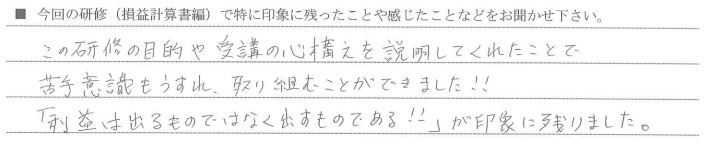 ■ 今回の研修（損益計算書編）で特に印象に残ったことや感じたことなどをお聞かせ下さい。
この研修の目的や受講の心構えを説明してくれたことで
苦手意識もうすれ、取り組むことができました!!
「利益は出るものではなく出すものである!!」が印象に残りました。